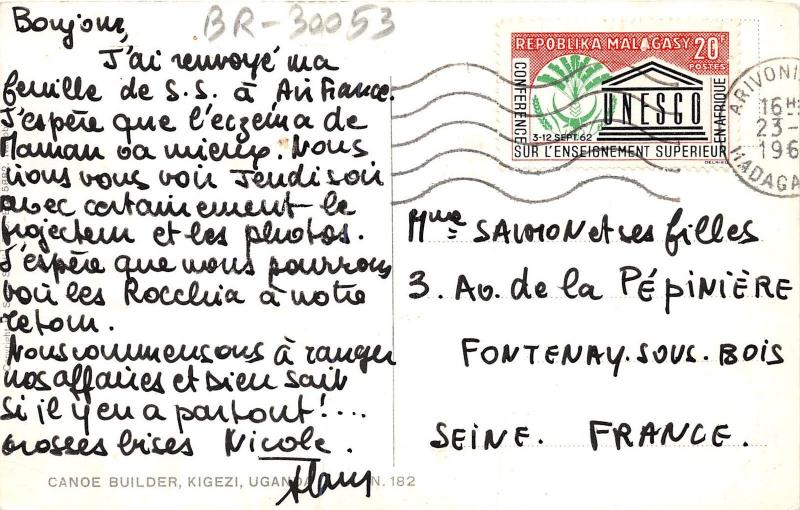 BR-30053
Bonjour,
J'ai renvoyé ma
feuille de S.S. à Air France.
J'espère que l'eczéma de
Maman va mieux. Nous
irons vous voir Jeudi soir
avec certainement le
projecteur et les photos.
J'espère que nous pourrons
voir les Rocchia à notre
retour.
Nous commençons à ranger
nos affaires et Dieu sait
si il y en a partout!....
Grosses bises Nicole.
CANOE BUILDER, KIGEZI, UGANDA N. 182
REPOBLIKA MALAGASY 20F
POSTES
CONFERENCE
UNESCO
EN AFRIQUE
3-12 SEPT. 62
SUR L'ENSEIGNEMENT SUPERIEUR
ARIVONI
16H
23-
196
MADAGA
Mme SALMON et ses filles
3. Av. de la PÉPINIÈRE
FONTENAY-SOUS-BOIS
SEINE. FRANCE.